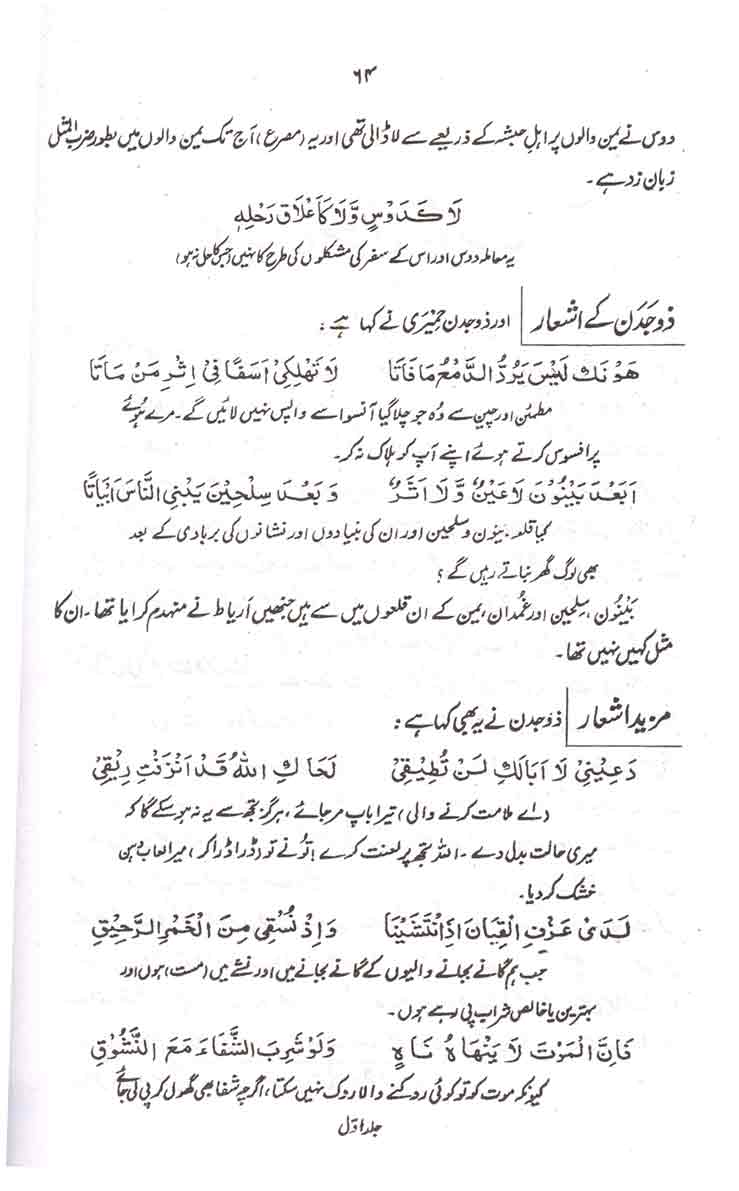 ۶۴
دوس نے یمن والوں پر اہلِ حبشہ کے ذریعے سے لا ڈالی تھی اور یہ (مصرع) آج تک یمن والوں میں بطور ضرب المثل
زبان زد ہے۔
لَا كَدَوْسٍ وَّلَا كَاَعْلَاقِ رَحْلِهٖ
یہ معاملہ دوس اور اس کے سفر کی مشکلوں کی طرح کا نہیں (جس کا حل نہ ہو)
ذوجَدَن کے اشعار اور ذوجدن حِمْیَری نے کہا ہے :
هَوْنَكِ لَيْسَ يَرُدُّ الدَّمْعُ مَا فَاتَا لَا تَهْلِكِيْ اَسَفًا فِيْ اِثْرِ مَنْ مَاتَا
مطمئن اور چین سے رہ جو چلا گیا آنسو اسے واپس نہیں لائیں گے۔ مرے ہُوئے
پر افسوس کرتے ہوئے اپنے آپ کو ہلاک نہ کر۔
اَبَعْدَ بَيْنُوْنَ لَا عَيْنٌ وَّلَا اَثَرٌ وَبَعْدَ سِلْحِيْنَ يَبْنِي النَّاسُ اَبْيَاتًا
کیا قلعہ بینون و سلحین اور ان کی بنیادوں اور نشانوں کی بربادی کے بعد
بھی لوگ گھر بناتے رہیں گے ؟
بَیْنُون، سِلحین اور غُمدان، یمن کے ان قلعوں میں سے ہیں جنھیں اَریاط نے منہدم کرایا تھا۔ ان کا
مثل کہیں نہیں تھا۔
مزید اشعار ذوجدن نے یہ بھی کہا ہے :
دَعِيْنِيْ لَا اَبَالَكِ لَنْ تُطِيْقِيْ لَحَاكِ اللّٰهُ قَدْ اَنْزَفْتِ رِيْقِيْ
(اے ملامت کرنے والی) تیرا باپ مر جائے، ہرگز تجھ سے یہ نہ ہو سکے گا کہ
میری حالت بدل دے۔ اللہ تجھ پر لعنت کرے! تُو نے تو (ڈرا ڈرا کر) میرا لعابِ دہن
خشک کر دیا۔
لَدَى عَزْفِ الْقِيَانِ اِذِ انْتَشَيْنَا وَاِذْ نُسْقٰى مِنَ الْخَمْرِ الرَّحِيْقِ
جب ہم گانے بجانے والیوں کے گانے بجانے میں اور نشے میں (مست) ہوں اور
بہترین یا خالص شراب پی رہے ہوں۔
فَاِنَّ الْمَوْتَ لَا يَنْهَاهُ نَاهٍ وَلَوْ شَرِبَ الشِّفَاءَ مَعَ النَّشُوْقِ
کیونکہ موت کو تو کوئی روکنے والا روک نہیں سکتا، اگرچہ شفا بھی گھول کر پی لی جائے
جلد اوّل